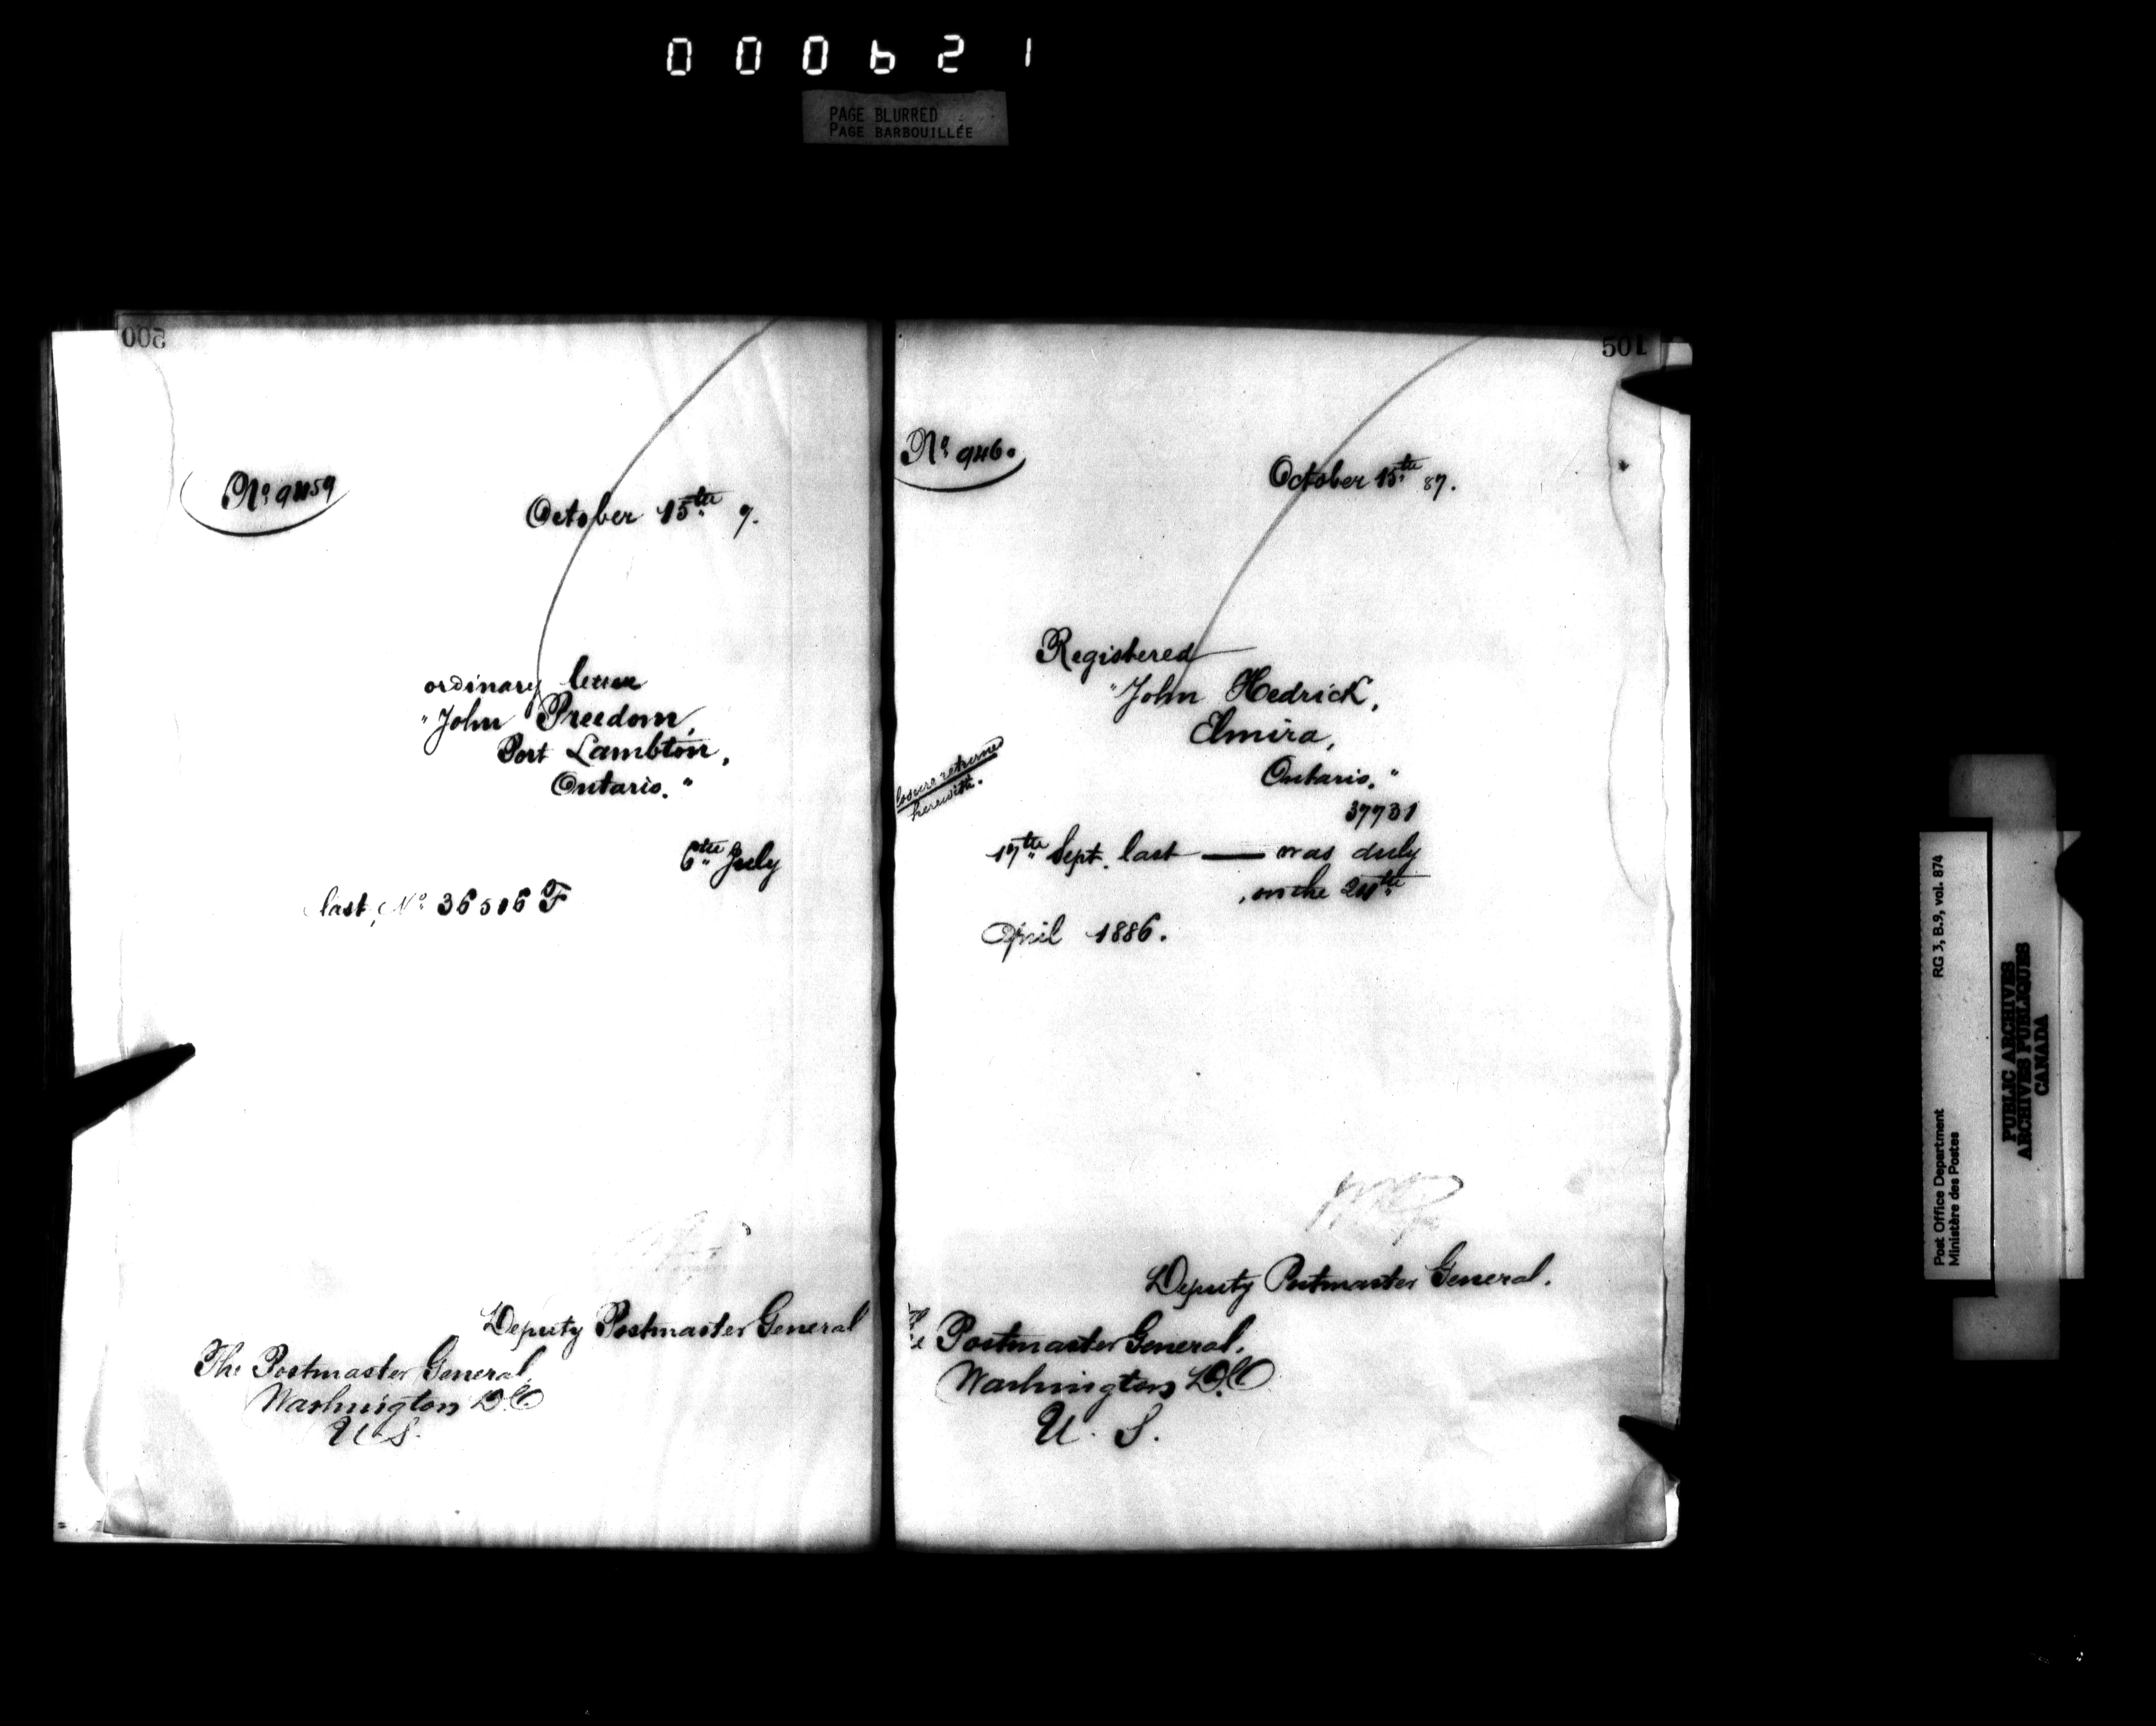 000621
PAGE BLURRED
PAGE BARBOUILLÉE
500
No 9459
October 15th 7.
ordinary letter
"John Preedom,
Port Lambton,
Ontario."
6th July
last, No 36506 F
Deputy Postmaster General
The Postmaster General,
Washington D.C
U.S.
501
No 946.
October 15th 87.
Registered
"John Hedrick,
Elmira,
Ontario."
returned
herewith.
37731
17th Sept. last — was duly
, on the 24th
April 1886.
Deputy Postmaster General.
Postmaster General,
Washington D.C
U. S.
Post Office Department
Ministère des Postes
RG 3, B.9, vol. 874
PUBLIC ARCHIVES
ARCHIVES PUBLIQUES
CANADA